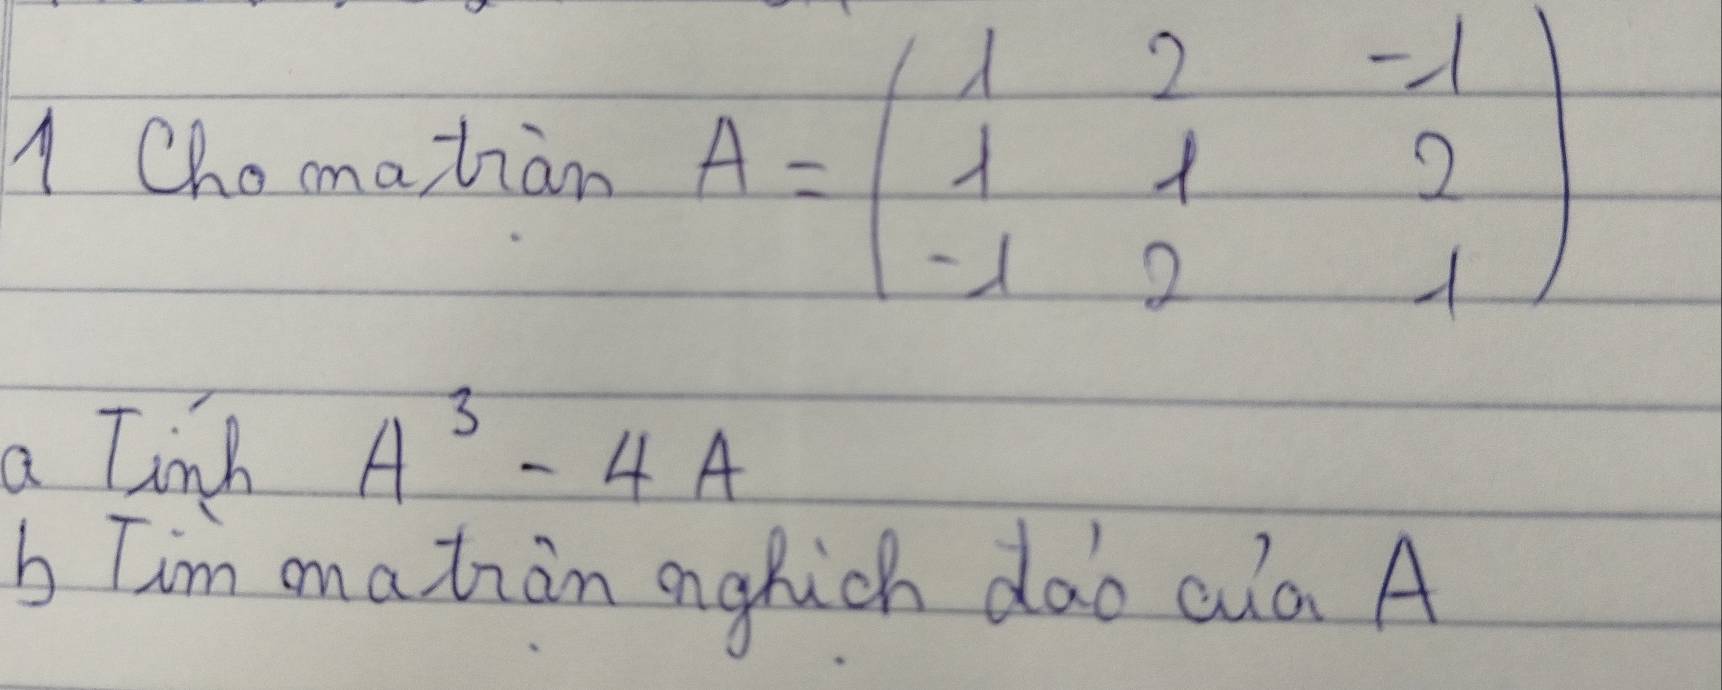 1 Cho ma trận A = ( 1 2 -1
1 1 2
-1 2 1 )
a Tính A³ - 4A
b Tìm ma trận nghịch đảo của A